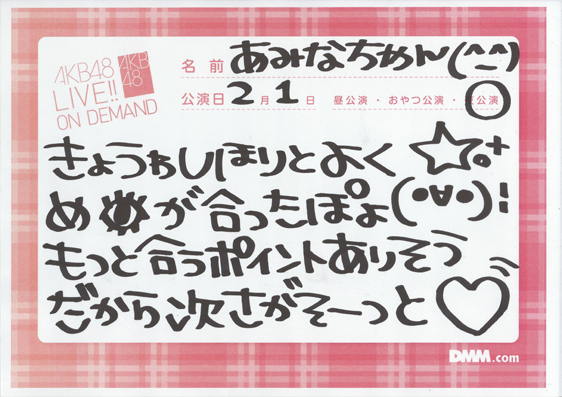 AKB48
LIVE!!
ON DEMAND
AKB
48
名前 あみなちゃん(^^)
公演日 2月1日 昼公演・おやつ公演・夜公演
きょうゎしほりとよく☆。+
め👁が合ったぽょ(°∀°)!
もっと合うポイントありそう
だから次さがそーっと♡
DMM.com